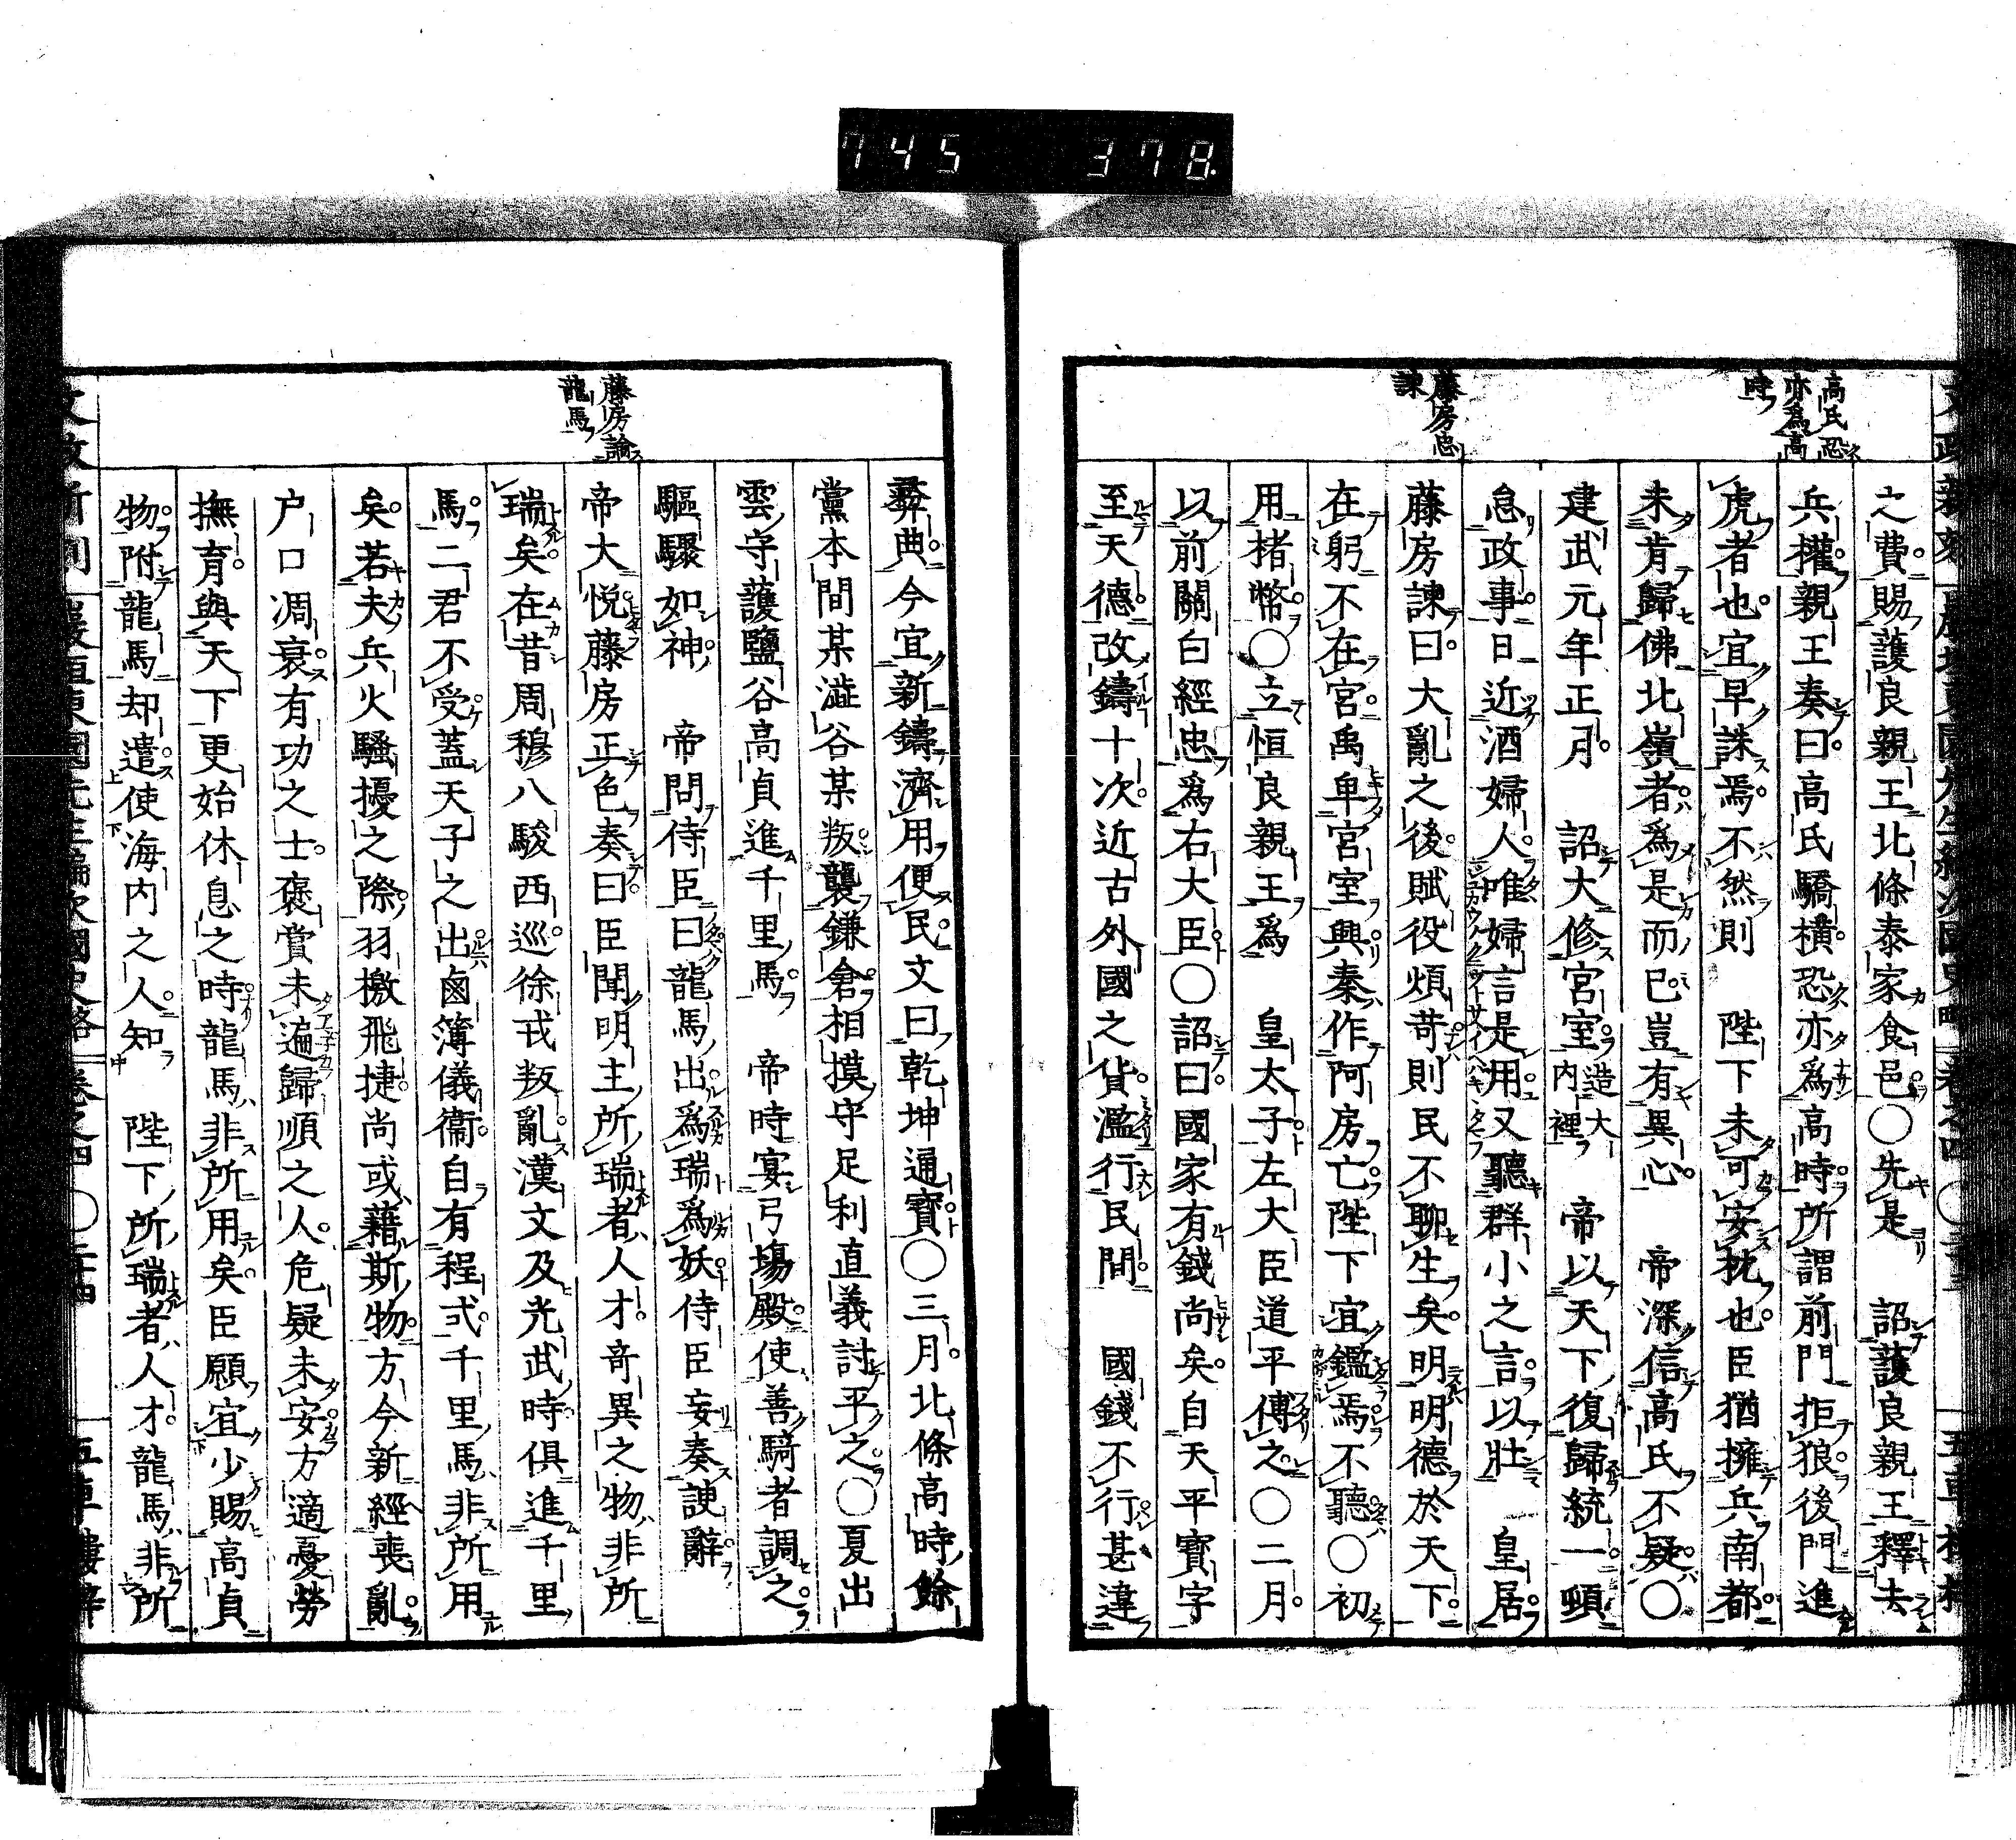 745 378.
高氏恐
亦爲高
時
藤房忠
諫
之費賜護良親王北條泰家食邑〇先是　詔護良親王釋去
兵權親王奏曰高氏驕橫恐亦爲高時所謂前門拒狼後門進
虎者也宜早誅焉不然則　陛下未可安枕也臣猶擁兵南都
未肯歸佛北嶺者爲是而已豈有異心　帝深信高氏不疑〇
建武元年正月　詔大修宮室造大內裡　帝以天下復歸統一頓
怠政事日近酒婦人唯婦言是用又聽群小之言以壯　皇居
藤房諫曰大亂之後賦役煩苛則民不聊生矣明明德於天下
在躬不在宮禹卑宮室興秦作阿房亡陛下宜鑑焉不聽〇初
用楮幣〇立恒良親王爲　皇太子左大臣道平傳之〇二月
以前關白經忠爲右大臣〇詔曰國家有錢尚矣自天平寶字
至天德改鑄十次近古外國之貨濫行民間　國錢不行甚違
藤房論
龍馬
彛典今宜新鑄濟用便民文曰乾坤通寶〇三月北條高時餘
黨本間某澁谷某叛襲鎌倉相摸守足利直義討平之〇夏出
雲守護鹽谷高貞進千里馬　帝時宴弓塲殿使善騎者調之
驅驟如神　帝問侍臣曰龍馬出爲瑞爲妖侍臣妄奏諛辭
帝大悅藤房正色奏曰臣聞明主所瑞者人才奇異之物非所
瑞矣在昔周穆八駿西巡徐戎叛亂漢文及光武時俱進千里
馬二君不受蓋天子之出鹵簿儀衞自有程式千里馬非所用
矣若夫兵火騷擾之際羽檄飛捷尚或藉斯物方今新經喪亂
户口凋衰有功之士褒賞未遍歸順之人危疑未安方適憂勞
撫育與天下更始休息之時龍馬非所用矣臣願宜少賜高貞
物附龍馬却遣使海内之人知　陛下所瑞者人才龍馬非所